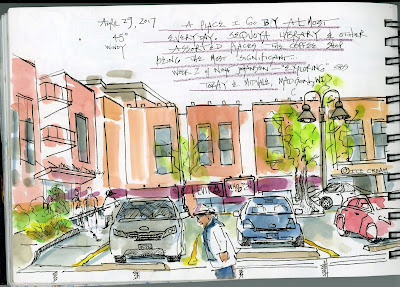 April 29, 2017
45°
WINDY
A PLACE I GO BY ALMOST
EVERYDAY. SEQUOYA LIBRARY & OTHER
ASSORTED PLACES, THE COFFEE SHOP
BEING THE MOST SIGNIFICANT.
WEEK 2 of "EXPLORING"
TOKAY & MIDVALE, MADISON, WI
ICE CREAM